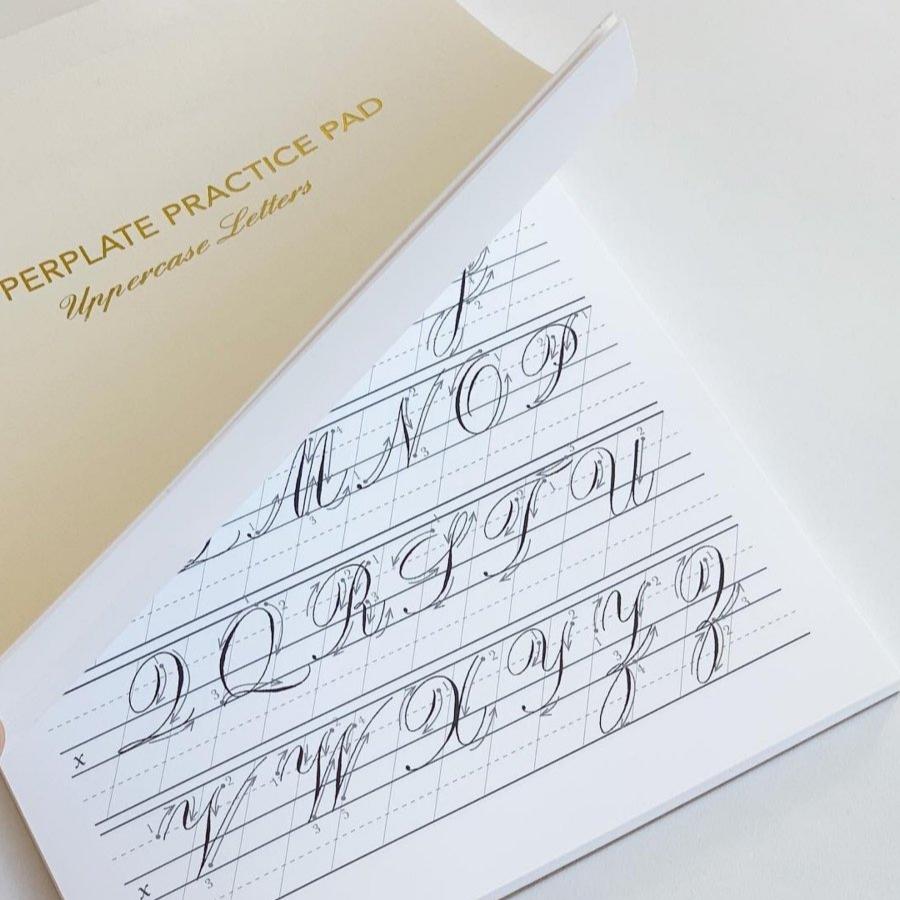 PERPLATE PRACTICE PAD
Uppercase Letters
J
L M N O P
Q Q R S T U
x
V W X Y Y Z
x